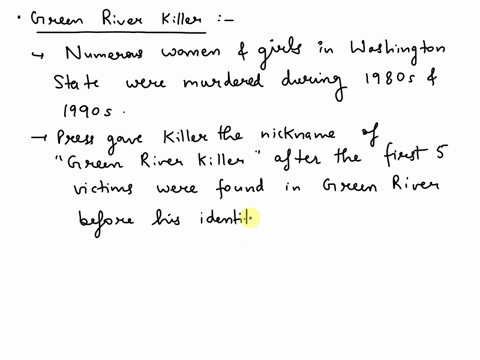 • Green River Killer :-
→ Numerous women & girls in Washington
State were murdered during 1980s &
1990s.
→ Press gave killer the nickname of
"Green River Killer" after the first 5
victims were found in Green River
before his identit